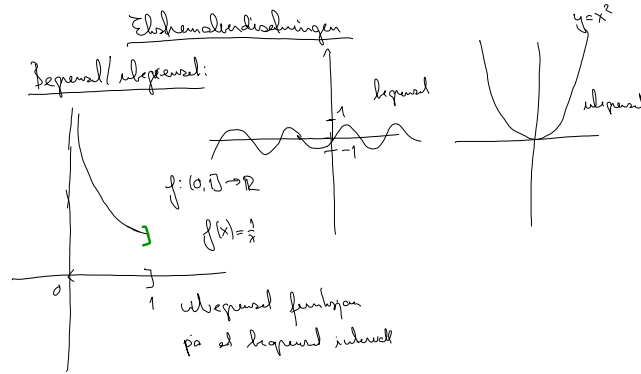 Ekstremalverdisetningen
Begrenset/ubegrenset:
begrenset
1
-1
y=x²
ubegrenset
f: (0,1] → ℝ
f(x) = 1/x
0
1
ubegrenset funksjon
på et begrenset intervall